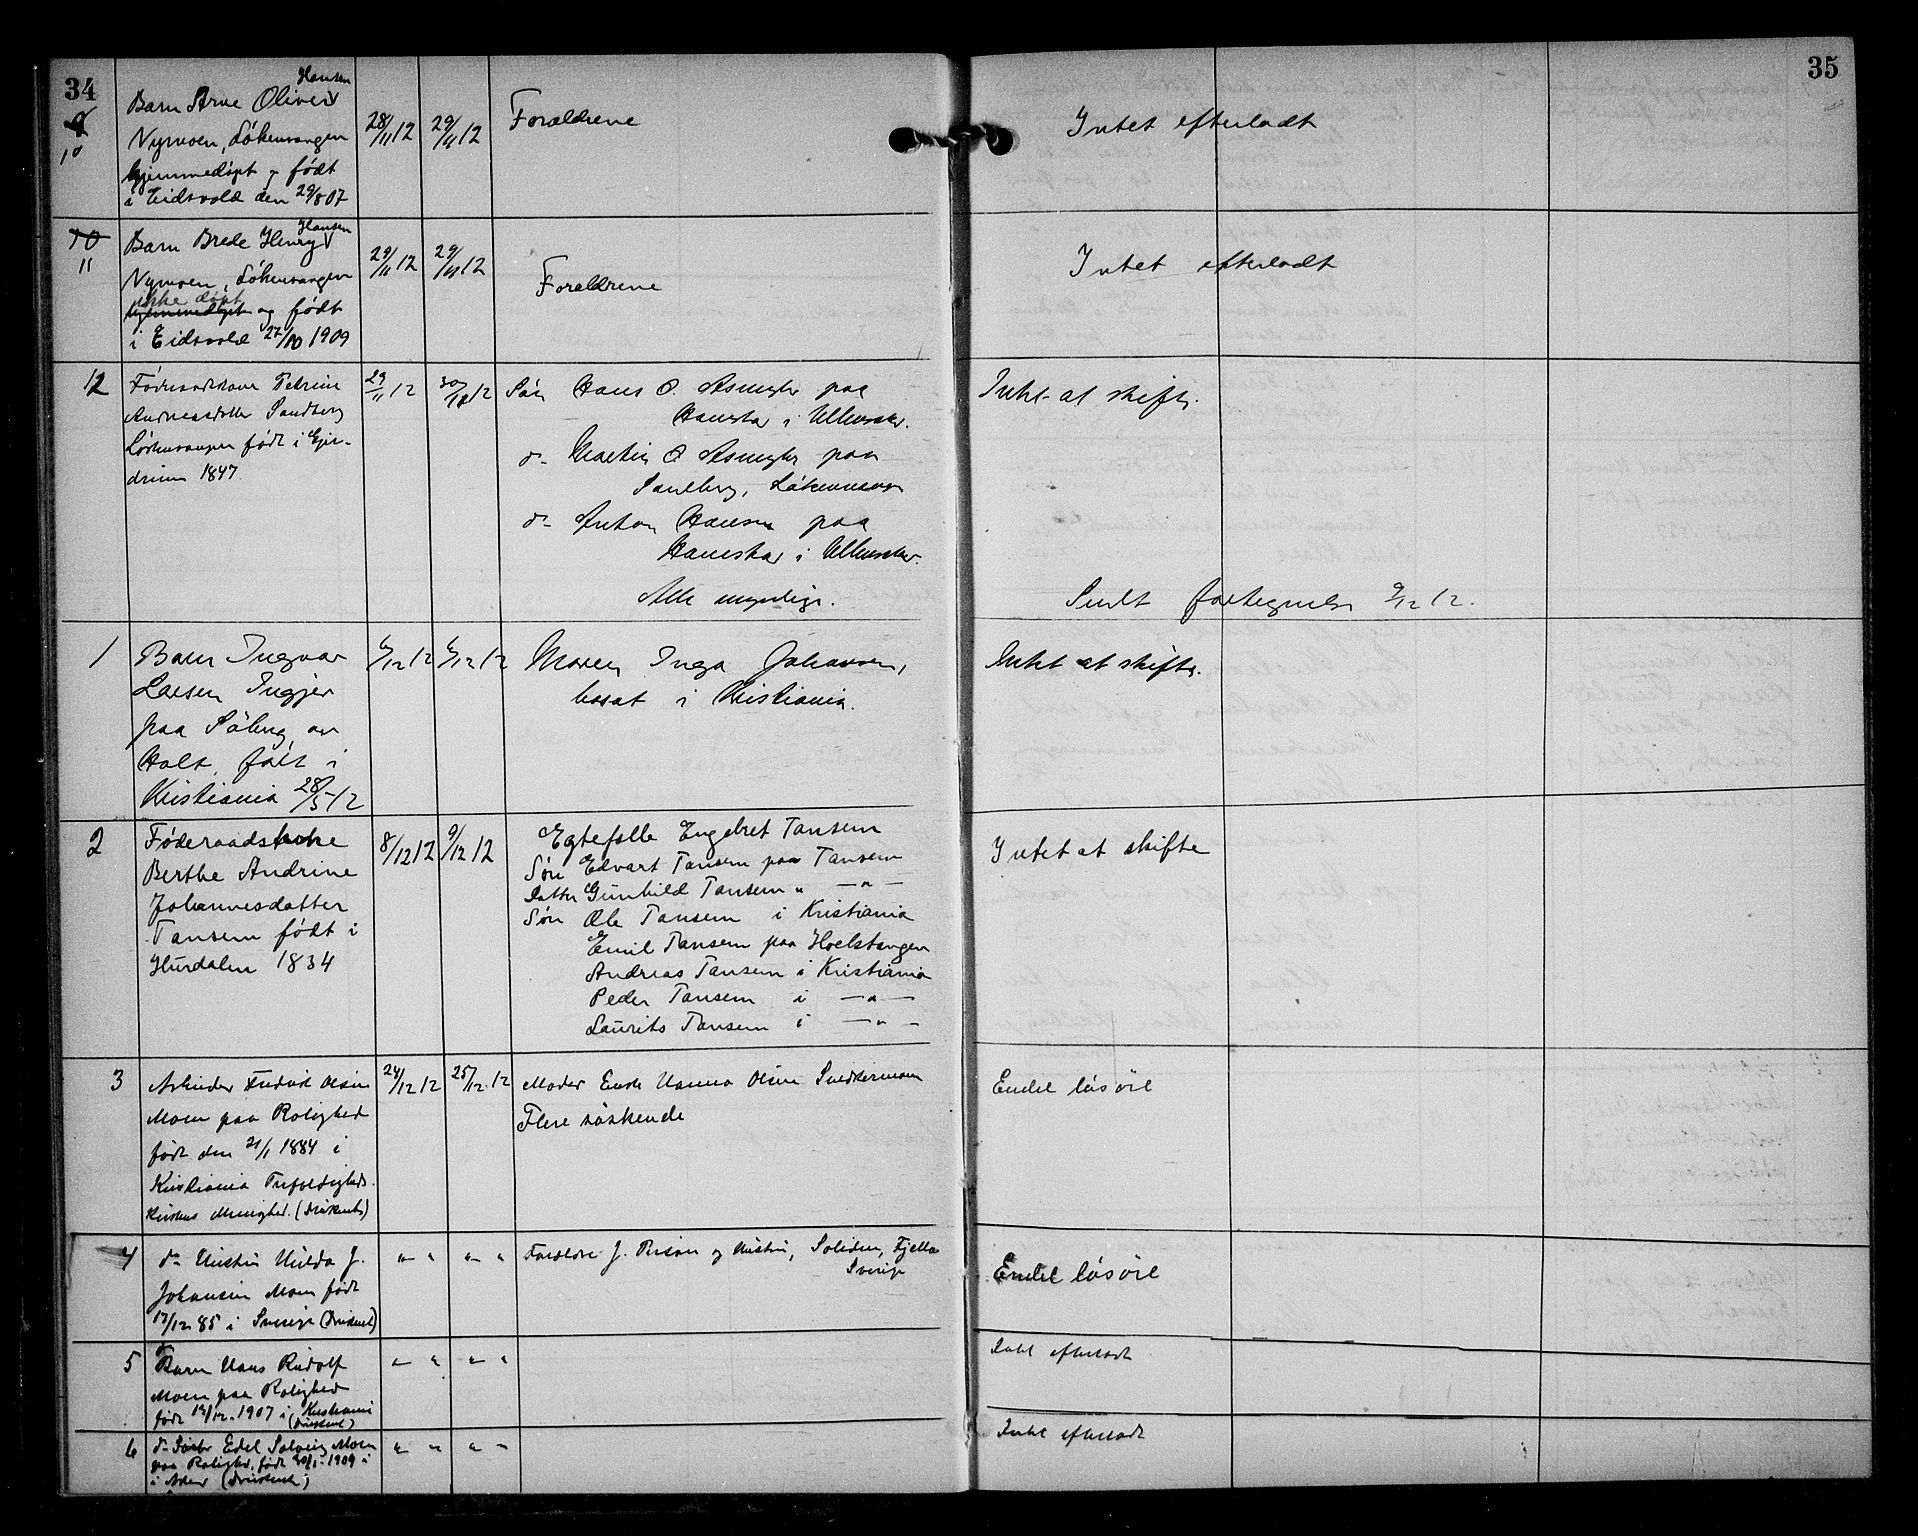 34
35
9
10
Barn Arne Oliver Hansen
Nymoen, Løkenvangen
hjemmedøpt og født
i Eidsvold den 29/8 07
28/11 12
29/11 12
Forældrene
Intet efterladt
10
11
Barn Brede Henry Hansen
Nymoen, Løkenvangen
ikke døpt
hjemmedøpt og født
i Eidsvold 27/10 1909
29/11 12
29/11 12
Forældrene
Intet efterladt
12
Petrine
Sandberg
født i
1847
29/11 12
30/11 12
Søn Hans O. Asmyhr paa
i
d- Martin O Asmyhr paa
Sandberg,
d- Anton Hansen paa
i
Alle myndige.
Intet at skifte.
Sendt fortegnelse 9/12 12.
1
Barn Ingvar
Larsen Ingjer
paa
Holt, født i
Kristiania 28/5 12
6/12 12
6/12 12
Moren Inga Johansen,
bosat i Kristiania.
Intet at skifte.
2
Føderaadskone
Berthe Andrine
Johannesdatter
Tansem født i
Hurdalen 1834
8/12 12
9/12 12
Egtefelle Engebret Tansem
Søn Edvart Tansem paa Tansem
Datter Gunhild Tansem " — " —
Søn Ole Tansem i Kristiania
Emil Tansem paa Hoelstangen
Andreas Tansem i Kristiania
Peder Tansem i — " —
Laurits Tansem i — " —
Intet at skifte
3
Arbeider Fredrik Olsen
Moen paa Rolighed
født den 21/1 1884 i
Kristiania Trefoldigheds
kirkens Menighed. (Druknet)
24/12 12
25/12 12
Moder Enke Hanna Olsen
Flere søskende
Endel løsøre
4
d- Hustru Hilda J.
Johansen Moen født
17/12 85 i Sverige (Druknet)
" "
" "
Forældre J. og Hustru,
Sverige
Endel løsøre
5
Barn Hans Rudolf
Moen paa Rolighed
født 13/12 1907 i Kristiania
(Druknet)
" "
" "
Intet efterladt
6
Edel Solveig Moen
paa Rolighed, født 1909 i
i Aker (Druknet)
" "
" "
Intet efterladt